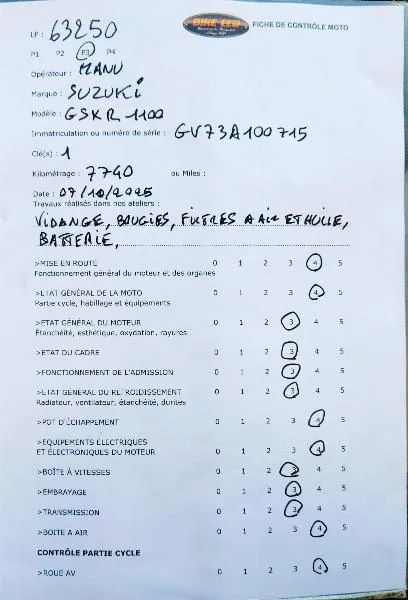 LP : 63250
BIKE ECO
FICHE DE CONTRÔLE MOTO
P1 P2 P3 P4
Opérateur : MANU
Marque : SUZUKI
Modèle : GSKR 1100
Immatriculation ou numéro de série : GV73A100715
Clé(s) : 1
Kilométrage : 7740 ou Miles :
Date : 07/10/2025
Travaux réalisés dans nos ateliers :
VIDANGE, BOUGIES, FILTRES A AIR ET HUILE,
BATTERIE,
>MISE EN ROUTE 0 1 2 3 4 5
Fonctionnement général du moteur et des organes
>ETAT GÉNÉRAL DE LA MOTO 0 1 2 3 4 5
Partie cycle, habillage et équipements
>ETAT GÉNÉRAL DU MOTEUR 0 1 2 3 4 5
Étanchéité, esthétique, oxydation, rayures
>ETAT DU CADRE 0 1 2 3 4 5
>FONCTIONNEMENT DE L'ADMISSION 0 1 2 3 4 5
>ETAT GÉNÉRAL DU RETROIDISSEMENT 0 1 2 3 4 5
Radiateur, ventilateur, étanchéité, durites
>POT D'ÉCHAPPEMENT 0 1 2 3 4 5
>EQUIPEMENTS ÉLECTRIQUES
ET ÉLECTRONIQUES DU MOTEUR 0 1 2 3 4 5
>BOÎTE À VITESSES 0 1 2 3 4 5
>EMBRAYAGE 0 1 2 3 4 5
>TRANSMISSION 0 1 2 3 4 5
>BOITE A AIR 0 1 2 3 4 5
CONTRÔLE PARTIE CYCLE
>ROUE AV 0 1 2 3 4 5